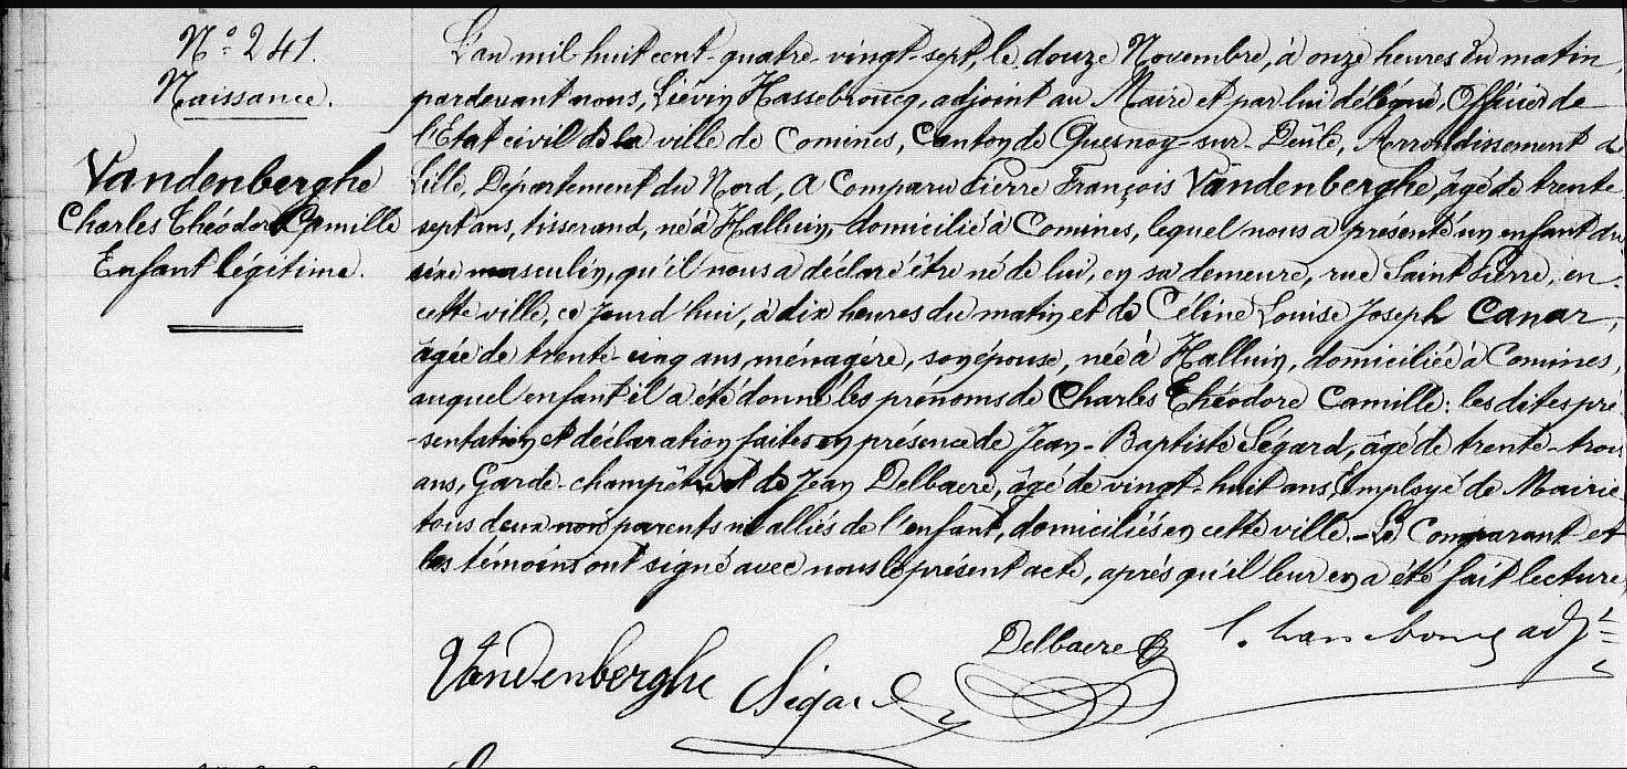 N° 241.
Naissance.
Vandenberghe
Charles Théodore Camille
Enfant légitime.
L'an mil huit cent quatre-vingt-sept, le douze Novembre, à onze heures du matin,
pardevant nous, Liévin Hassebroucq, adjoint au Maire et par lui délégué, Officier de
l'Etat civil de la ville de Comines, Canton de Quesnoy-sur-Deûle, Arrondissement de
Lille, Département du Nord, a Comparu Pierre François Vandenberghe, âgé de trente
sept ans, tisserand, né à Halluin, domicilié à Comines, lequel nous a présenté un enfant du
sexe masculin, qu'il nous a déclaré être né de lui, en sa demeure, rue Saint Pierre, en
cette ville, ce jourd'hui, à dix heures du matin et de Céline Louise Joseph Canar,
âgée de trente-cinq ans, ménagère, son épouse, née à Halluin, domiciliée à Comines,
auquel enfant il a été donné les prénoms de Charles Théodore Camille: les dites pré
-sentation et déclaration faites en présence de Jean-Baptiste Ségard, âgé de trente-trois
ans, Garde-champêtre et de Jean Delbaere, âgé de vingt-huit ans, Employé de Mairie
tous deux non parents ni alliés de l'enfant, domiciliés en cette ville. - Le Comparant et
les témoins ont signé avec nous le présent acte, après qu'il leur en a été fait lecture,
Vandenberghe Ségard Delbaere adjt